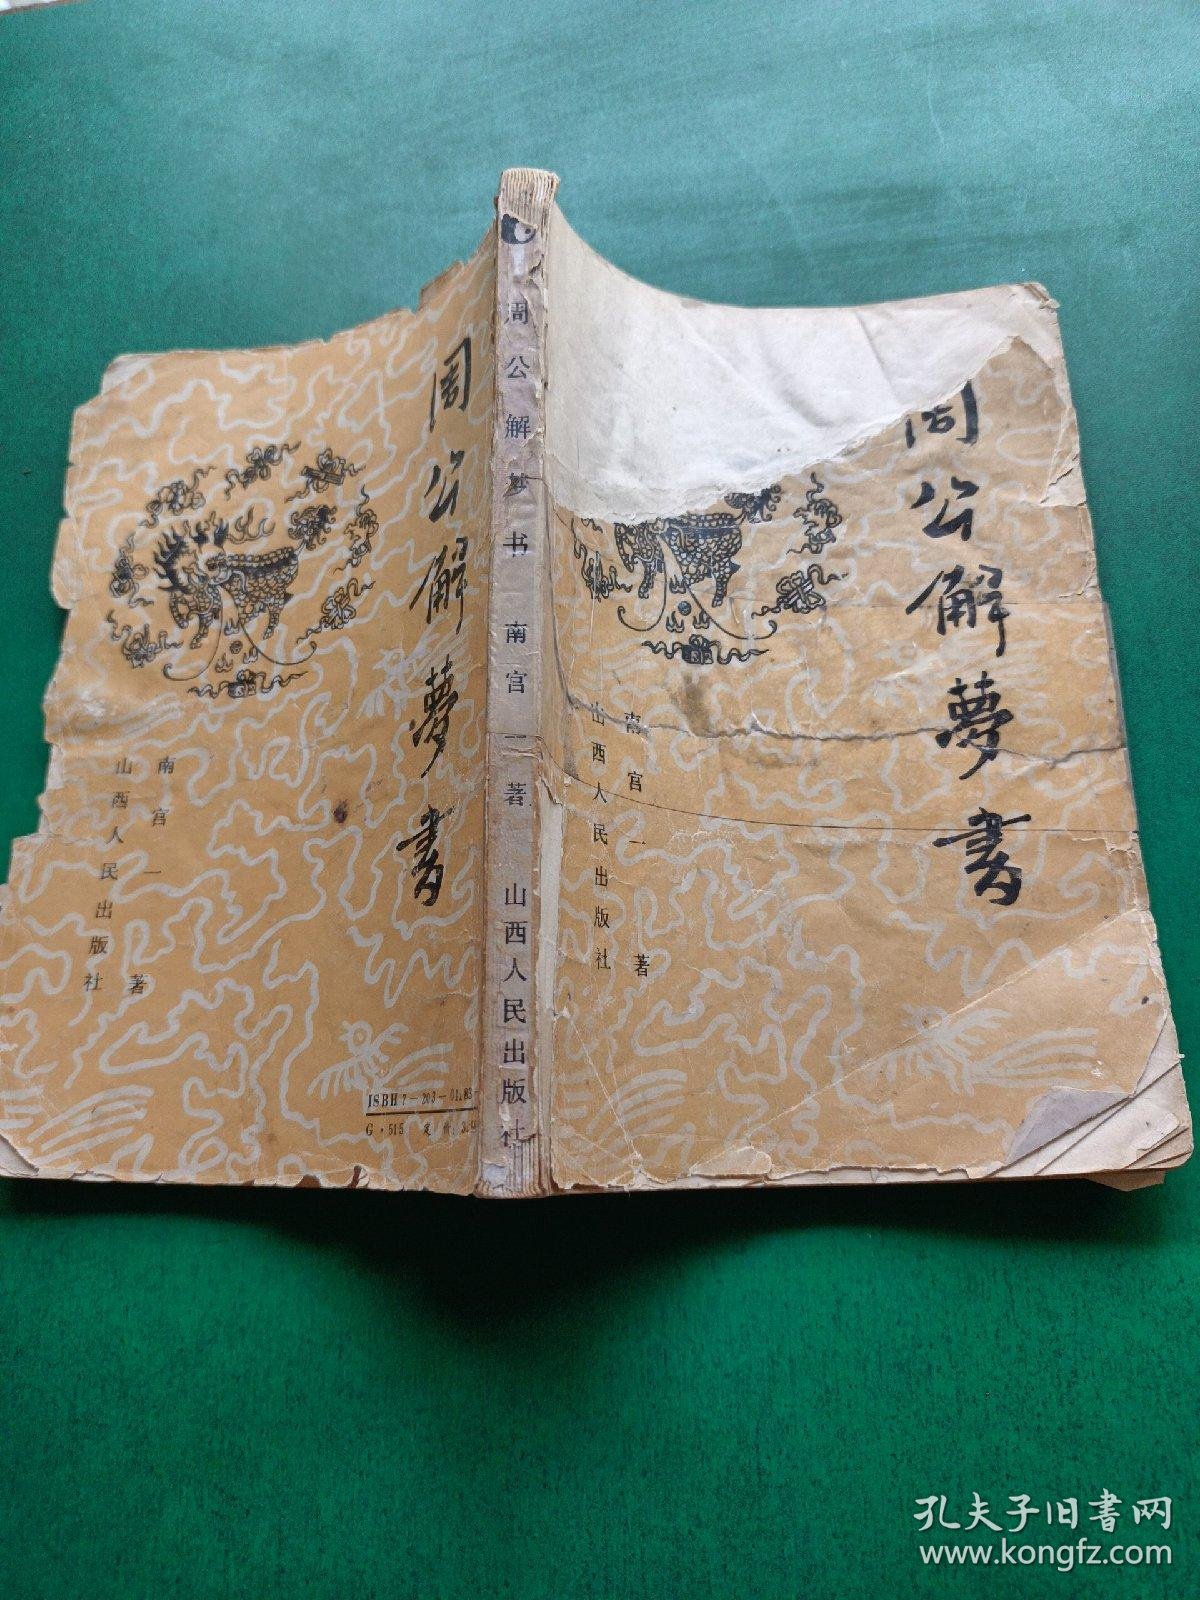 周公解夢書
南宫一著
山西人民出版社
周公解梦书 南宫一著 山西人民出版社
周公解夢書
南宫一著
山西人民出版社
ISBH7-203-01183-
G·515 定价:3.
孔夫子旧书网
www.kongfz.com